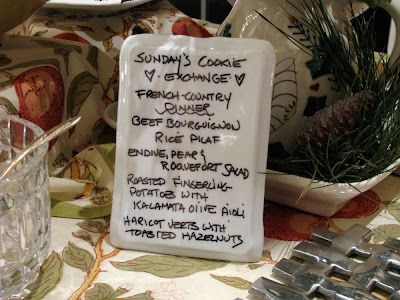 SUNDAY'S COOKIE
♡ EXCHANGE ♡
FRENCH-COUNTRY
DINNER
BEEF BOURGUIGNON
RICE PILAF
ENDIVE, PEAR &
ROQUEFORT SALAD
ROASTED FINGERLING
POTATOES WITH
KALAMATA OLIVE AIOLI
HARICOT VERTS WITH
TOASTED HAZELNUTS